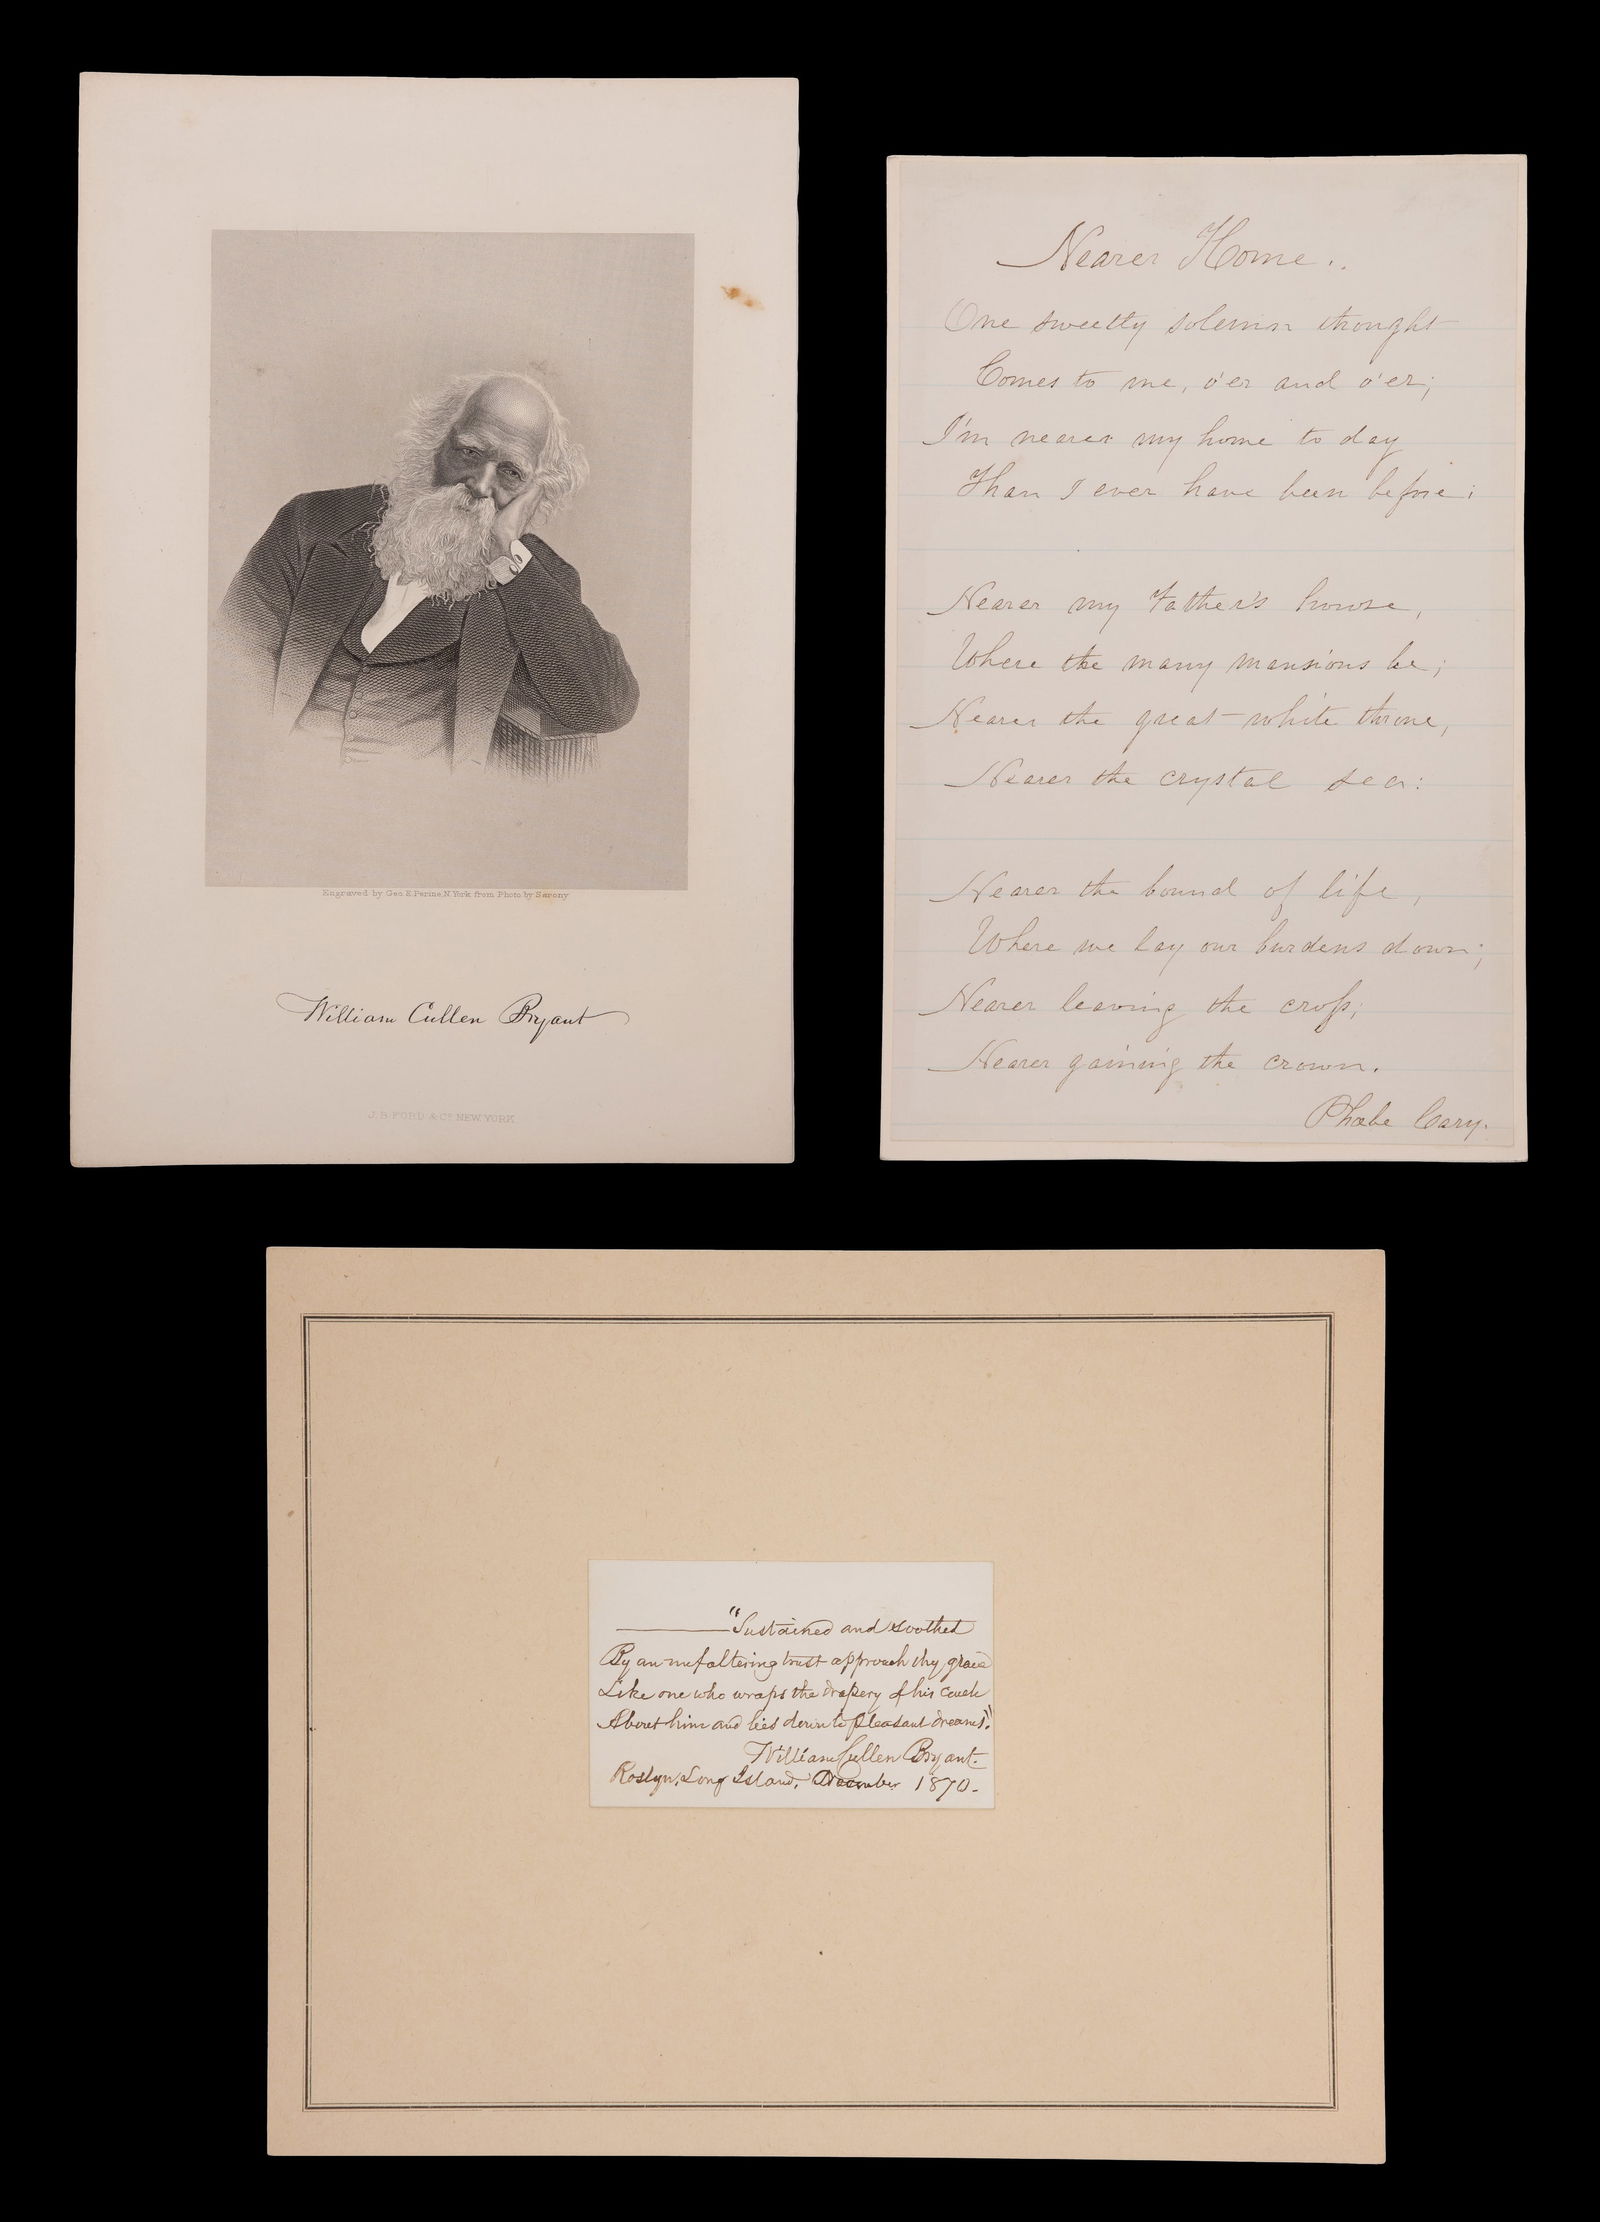 Engraved by Geo. E. Perine, N. York from Photo by Sarony
William Cullen Bryant
J. B. FORD & Co. NEW YORK
Nearer Home..
One sweetly solemn thought
Comes to me, o'er and o'er;
I'm nearer my home to day
Than I ever have been before;
Nearer my Father's house,
Where the many mansions be;
Nearer the great white throne,
Nearer the crystal sea:
Nearer the bound of life,
Where we lay our burdens down;
Nearer leaving the croſs;
Nearer gaining the crown.
Phœbe Cary.
"Sustained and soothed
By an unfaltering trust approach thy grave
Like one who wraps the drapery of his couch
About him and lies down to pleasant dreams."
William Cullen Bryant.
Roslyn, Long Island, December 1870.